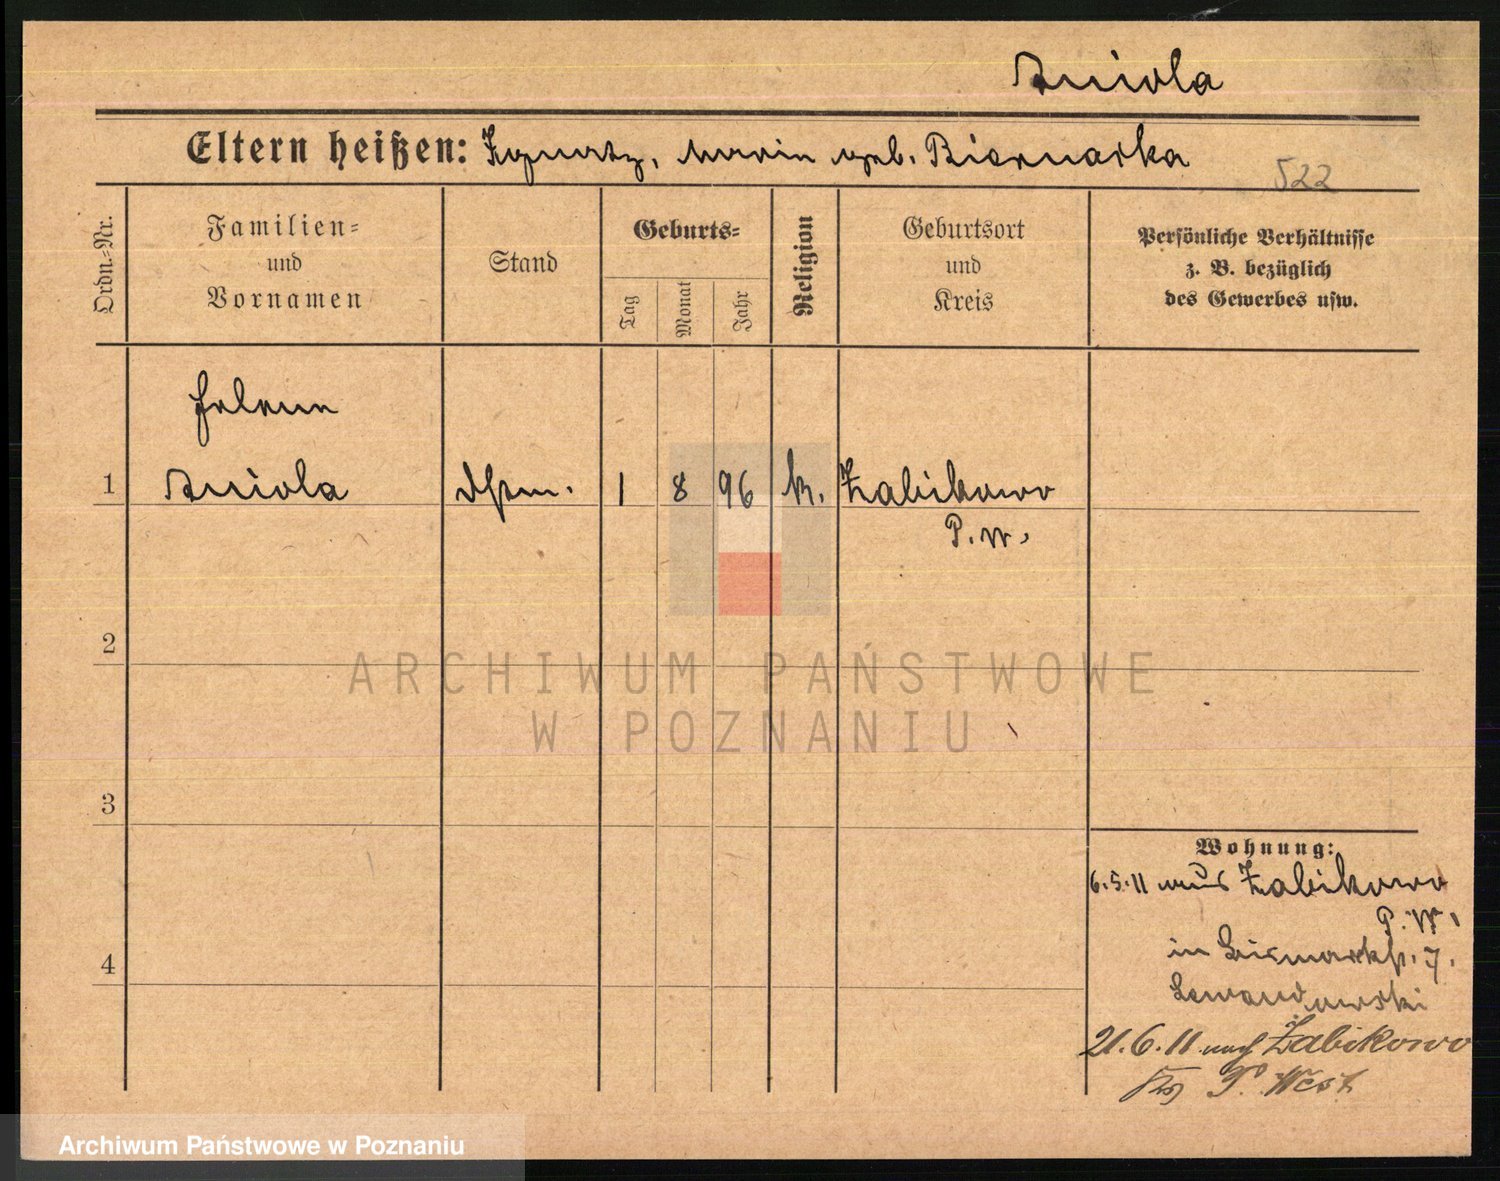 Aniola
Eltern heißen: Ignatz, Maria geb. Biernacka
522
Ordn.-Nr.
Familien-
und
Vornamen
Stand
Geburts-
Tag
Monat
Jahr
Religion
Geburtsort
und
Kreis
Persönliche Verhältnisse
z. B. bezüglich
des Gewerbes usw.
Helena
1 Aniola Dstm. 1 8 96 k. Zabikowo
P. W.
2
3
4
Wohnung:
6.5.11 aus Zabikowo
P. W.
in Bismarckst. 7.
Lewandowski
21.6.11 nach Zabikowo
P. West
ARCHIWUM PAŃSTWOWE
W POZNANIU
Archiwum Państwowe w Poznaniu